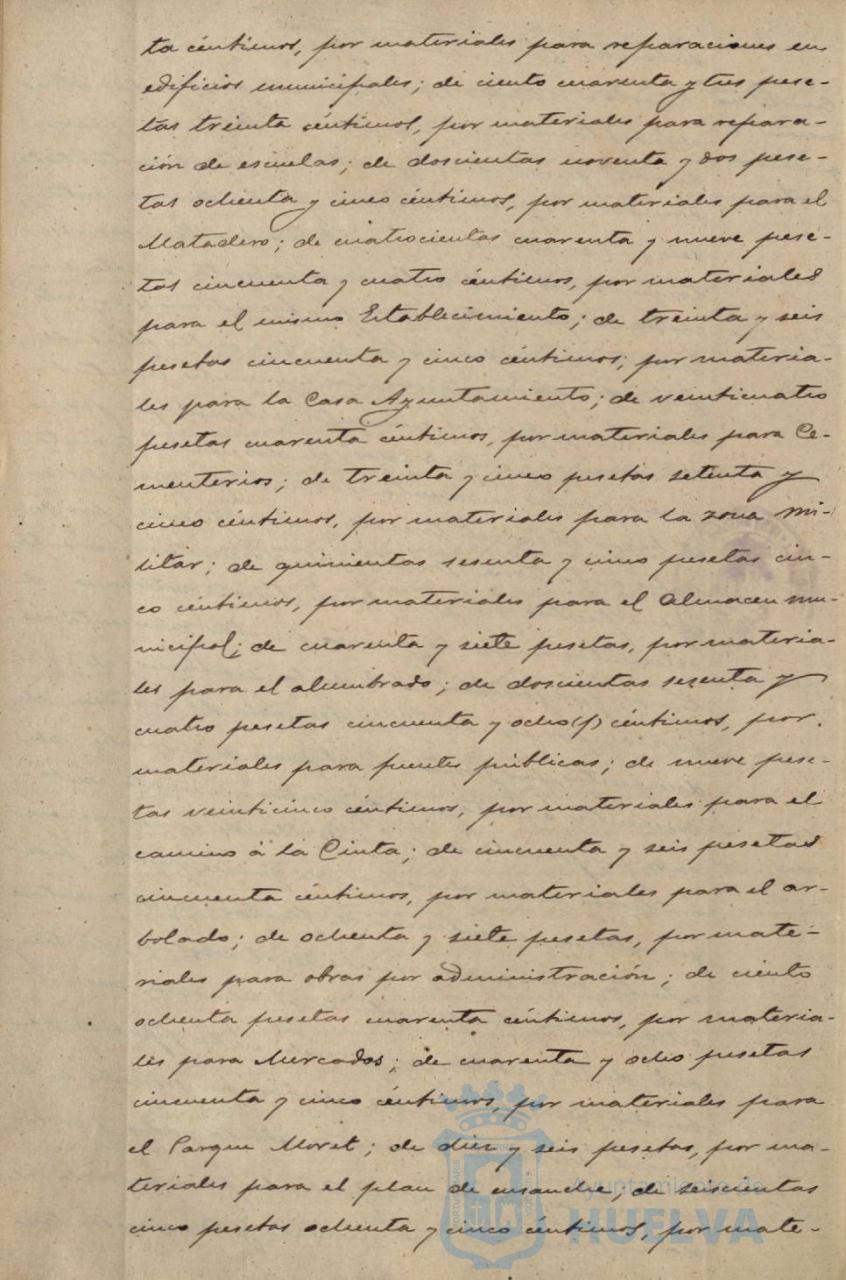 ta céntimos, por materiales para reparaciones en
edificios municipales; de ciento cuarenta y tres pese-
tas treinta céntimos, por materiales para repara-
ción de escuelas; de doscientas noventa y dos pese-
tas ochenta y cinco céntimos, por materiales para el
Matadero; de cuatrocientas cuarenta y nueve pese-
tas cincuenta y cuatro céntimos, por materiales
para el mismo Establecimiento; de treinta y seis
pesetas cincuenta y cinco céntimos, por materia-
les para la Casa Ayuntamiento; de veinticuatro
pesetas cuarenta céntimos, por materiales para Ce-
menterios; de treinta y cinco pesetas setenta y
cinco céntimos, por materiales para la zona Mi-
litar; de quinientas sesenta y cinco pesetas cin-
co céntimos, por materiales para el Almacen mu-
nicipal; de cuarenta y siete pesetas, por materia-
les para el alumbrado; de doscientas sesenta y
cuatro pesetas cincuenta y ocho(f) céntimos, por
materiales para fuentes públicas; de nueve pese-
tas veinticinco céntimos, por materiales para el
camino á la Cinta; de cincuenta y seis pesetas
cincuenta céntimos, por materiales para el ar-
bolado; de ochenta y siete pesetas, por mate-
riales para obras por administración; de ciento
ochenta pesetas cuarenta céntimos, por materia-
les para Mercados; de cuarenta y ocho pesetas
cincuenta y cinco céntimos, por materiales para
el Parque Moret; de diez y seis pesetas, por ma-
teriales para el plan de ensanche; de seiscientas
cinco pesetas ochenta y cinco céntimos, por mate-
Ayuntamiento de
HUELVA